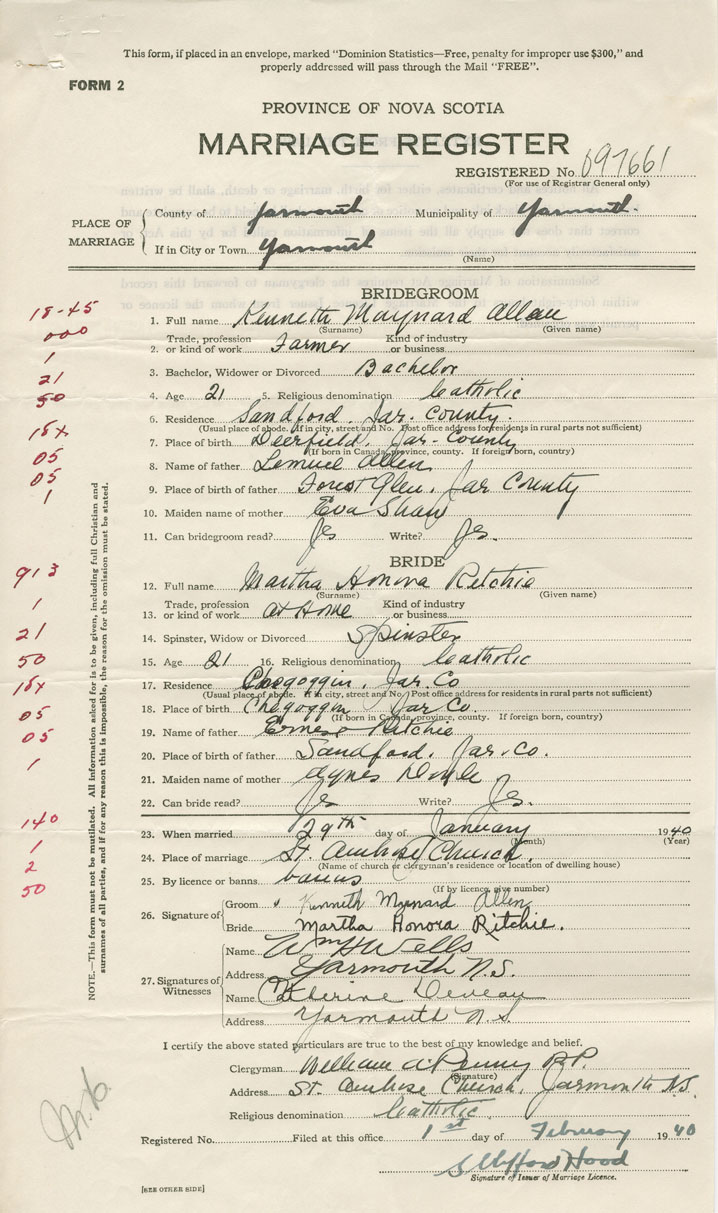 This form, if placed in an envelope, marked "Dominion Statistics—Free, penalty for improper use $300," and
properly addressed will pass through the Mail "FREE".
FORM 2
PROVINCE OF NOVA SCOTIA
MARRIAGE REGISTER
REGISTERED No. 097661
(For use of Registrar General only)
PLACE OF MARRIAGE
County of Yarmouth Municipality of Yarmouth.
If in City or Town Yarmouth
(Name)
BRIDEGROOM
18-45
1. Full name Kenneth Maynard Allen
(Surname) (Given name)
000
2. Trade, profession or kind of work Farmer Kind of industry or business
1
3. Bachelor, Widower or Divorced Bachelor
21
4. Age 21 5. Religious denomination Catholic
50
6. Residence Sandford, Yar. County.
(Usual place of abode. If in city, street and No. Post office address for residents in rural parts not sufficient)
18x
7. Place of birth Deerfield, Yar. County
(If born in Canada, province, county. If foreign born, country)
05
8. Name of father Lemuel Allen
05
9. Place of birth of father Forest Glen, Yar County
1
10. Maiden name of mother Eva Shaw
11. Can bridegroom read? Yes Write? Yes.
BRIDE
913
12. Full name Martha Honora Ritchie
(Surname) (Given name)
1
13. Trade, profession or kind of work at Home Kind of industry or business
21
14. Spinster, Widow or Divorced Spinster
50
15. Age 21 16. Religious denomination Catholic
18x
17. Residence Chegoggin, Yar. Co
(Usual place of abode. If in city, street and No. Post office address for residents in rural parts not sufficient)
05
18. Place of birth Chegoggin Yar Co.
(If born in Canada, province, county. If foreign born, country)
05
19. Name of father Ernest Ritchie
1
20. Place of birth of father Sandford, Yar. Co.
21. Maiden name of mother Agnes Doyle
22. Can bride read? Yes Write? Yes.
140
23. When married 29th day of January 1940
(Month) (Year)
1
24. Place of marriage St. Ambrose Church.
(Name of church or clergyman's residence or location of dwelling house)
2
25. By licence or banns banns
(If by licence, give number)
50
26. Signature of
Groom Kenneth Maynard Allen
Bride Martha Honora Ritchie.
27. Signatures of Witnesses
Name Wm H Wells
Address Yarmouth N.S.
Name Catherine Deveau
Address Yarmouth N.S
NOTE.—This form must not be mutilated. All information asked for is to be given, including full Christian and
surnames of all parties, and if for any reason this is impossible, the reason for the omission must be stated.
I certify the above stated particulars are true to the best of my knowledge and belief.
Clergyman William A. Penny P.P.
(Signature)
Address St. Ambrose Church, Yarmouth N.S.
Religious denomination Catholic.
Registered No. Filed at this office 1st day of February 1940
S Clifford Hood
Signature of Issuer of Marriage Licence.
[SEE OTHER SIDE]